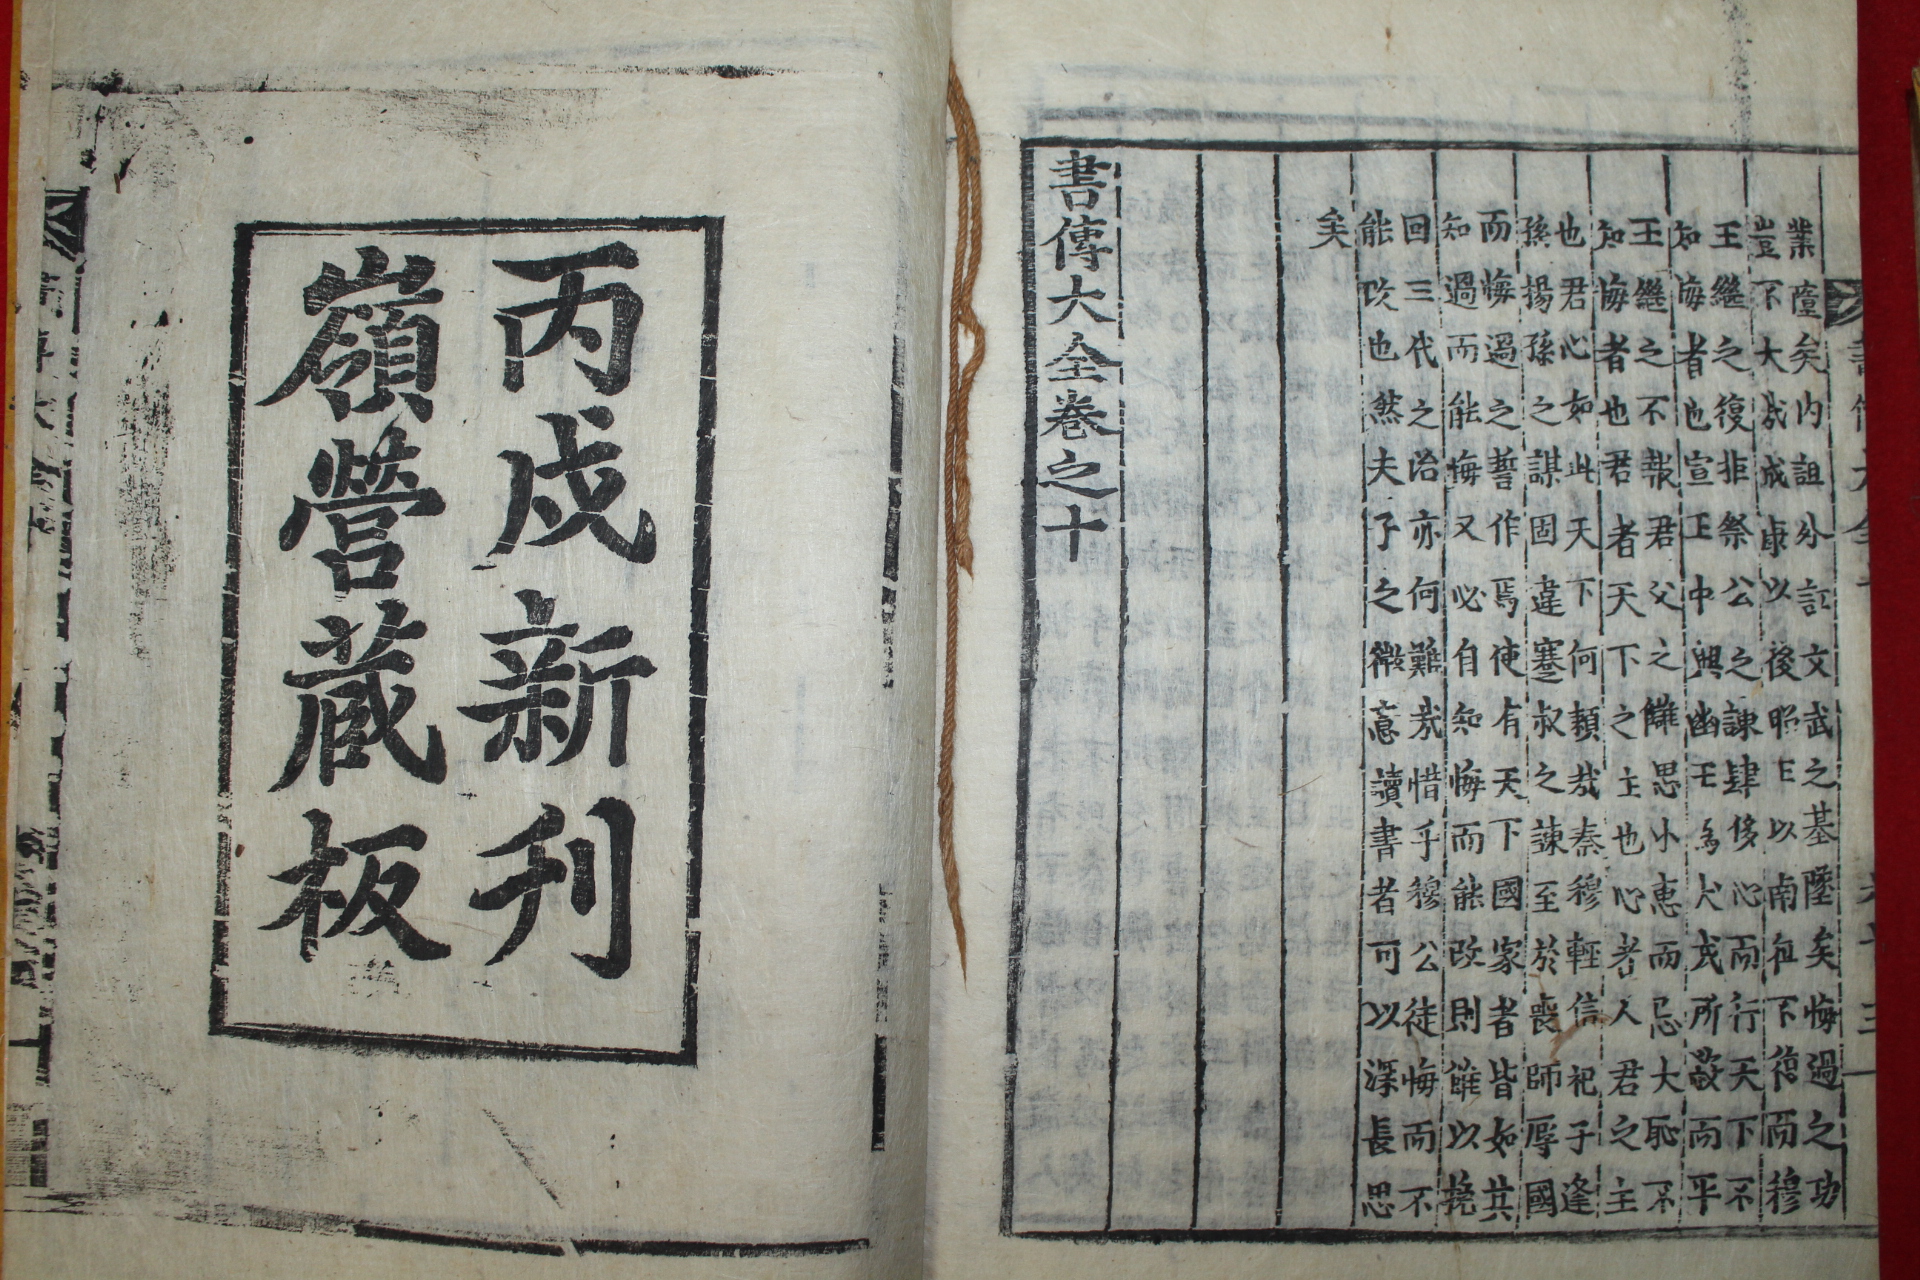 業墮矣內文武之基墜矣悔過之功
豈不大哉成康以後昭王以南征不復而穆
王繼之復拒祭公之諫肆侈心而行天下不
知悔者也宣王中興幽王為犬戎所敵而平
王繼之不報君父之讎思小惠而忘大恥不
知悔者也君者天下之主也心者人君之主
也君心如此天下何賴哉秦穆輕信杞子逢
孫揚孫之謀固違蹇叔之諫至於喪師辱國
而悔過之誓作焉使有天下國家者皆如其
知過而能悔又必自知悔而能改則雖以挽
回三代之治亦何難哉惜乎穆公徒悔而不
能改也然夫子之微意讀書者可以深長思
矣
書傳大全卷之十
丙戌新刊
嶺營藏板